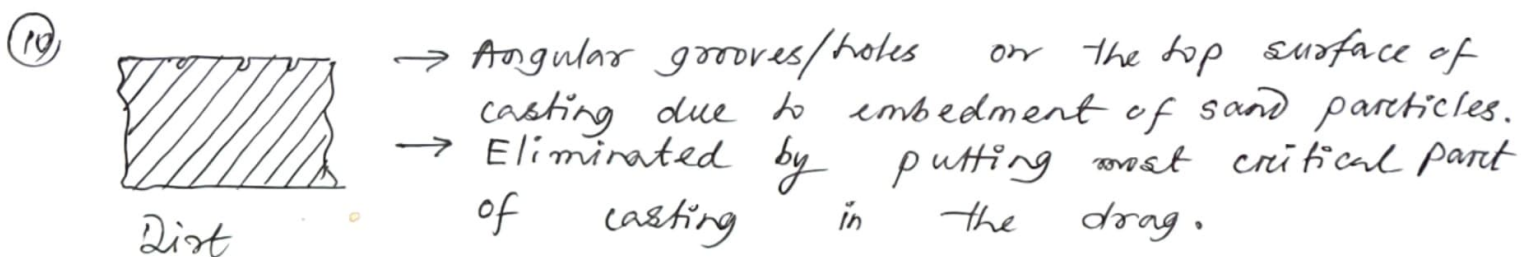 10
→ Angular grooves/holes on the top surface of
casting due to embedment of sand particles.
→ Eliminated by putting most critical part
of casting in the drag.
Dirt